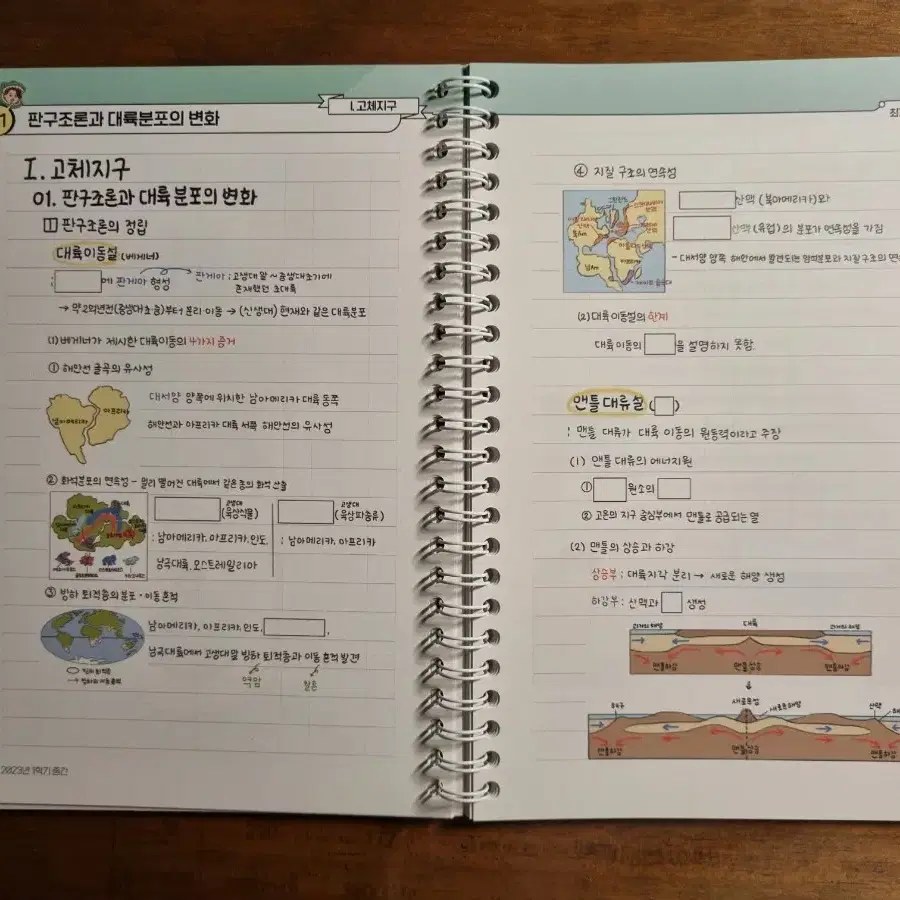 1 판구조론과 대륙분포의 변화
I.고체지구
I. 고체지구
01. 판구조론과 대륙 분포의 변화
1 판구조론의 정립
대륙이동설 (베게너)
: 에 판게아 형성
판게아 : 고생대 말 ~ 중생대초기에
존재했던 초대륙
→ 약 2억년전(중생대 초·중)부터 분리·이동 → (신생대) 현재와 같은 대륙분포
(1) 베게너가 제시한 대륙이동의 4가지 증거
① 해안선 굴곡의 유사성
남아메리카
아프리카
대서양 양쪽에 위치한 남아메리카 대륙 동쪽
해안선과 아프리카 대륙 서쪽 해안선의 유사성
② 화석분포의 연속성 - 멀리 떨어진 대륙에서 같은 종의 화석 산출
고생대
(육상식물)
: 남아메리카, 아프리카, 인도,
남극대륙, 오스트레일리아
고생대
(육상파충류)
: 남아메리카, 아프리카
③ 빙하 퇴적층의 분포·이동흔적
남아메리카, 아프리카, 인도, ,
남극대륙에서 고생대말 빙하 퇴적층과 이동 흔적 발견
빙하 퇴적층
→ 빙하의 이동 흔적
2023년 1학기 중간
④ 지질 구조의 연속성
산맥 (북아메리카)와
산맥 (유럽) 의 분포가 연속성을 가짐
아프리카
- 대서양 양쪽 해안에서 발견되는 암석분포와 지질구조의 연
(2) 대륙이동설의 한계
대륙 이동의 을 설명하지 못함.
맨틀 대류설 ( )
: 맨틀 대류가 대륙 이동의 원동력이라고 주장
(1) 맨틀 대류의 에너지원
① 원소의
② 고온의 지구 중심부에서 맨틀로 공급되는 열
(2) 맨틀의 상승과 하강
상승부 : 대륙지각 분리 → 새로운 해양 생성
하강부 : 산맥과 생성
과거의 해양
대륙
과거의 해양
맨틀하강
맨틀상승
맨틀하강
해구
새로운섬
새로운 해양
산맥
맨틀하강
맨틀상승
맨틀하강